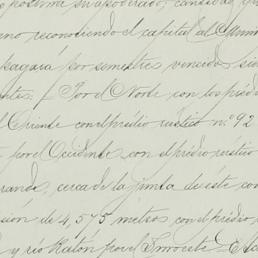 postrma su apoderado, cantidad qu
no reconociendo el capital al
pagará por semestres vencidos sin
Por el Norte con los prédi
el Oriente con el prédio rustico nº 92
por el Occidente con el prédio rustico
rande, cerca de la junta de éste con
sion de 4,575 metros con el prédio
y rio Ratón por el Suroeste